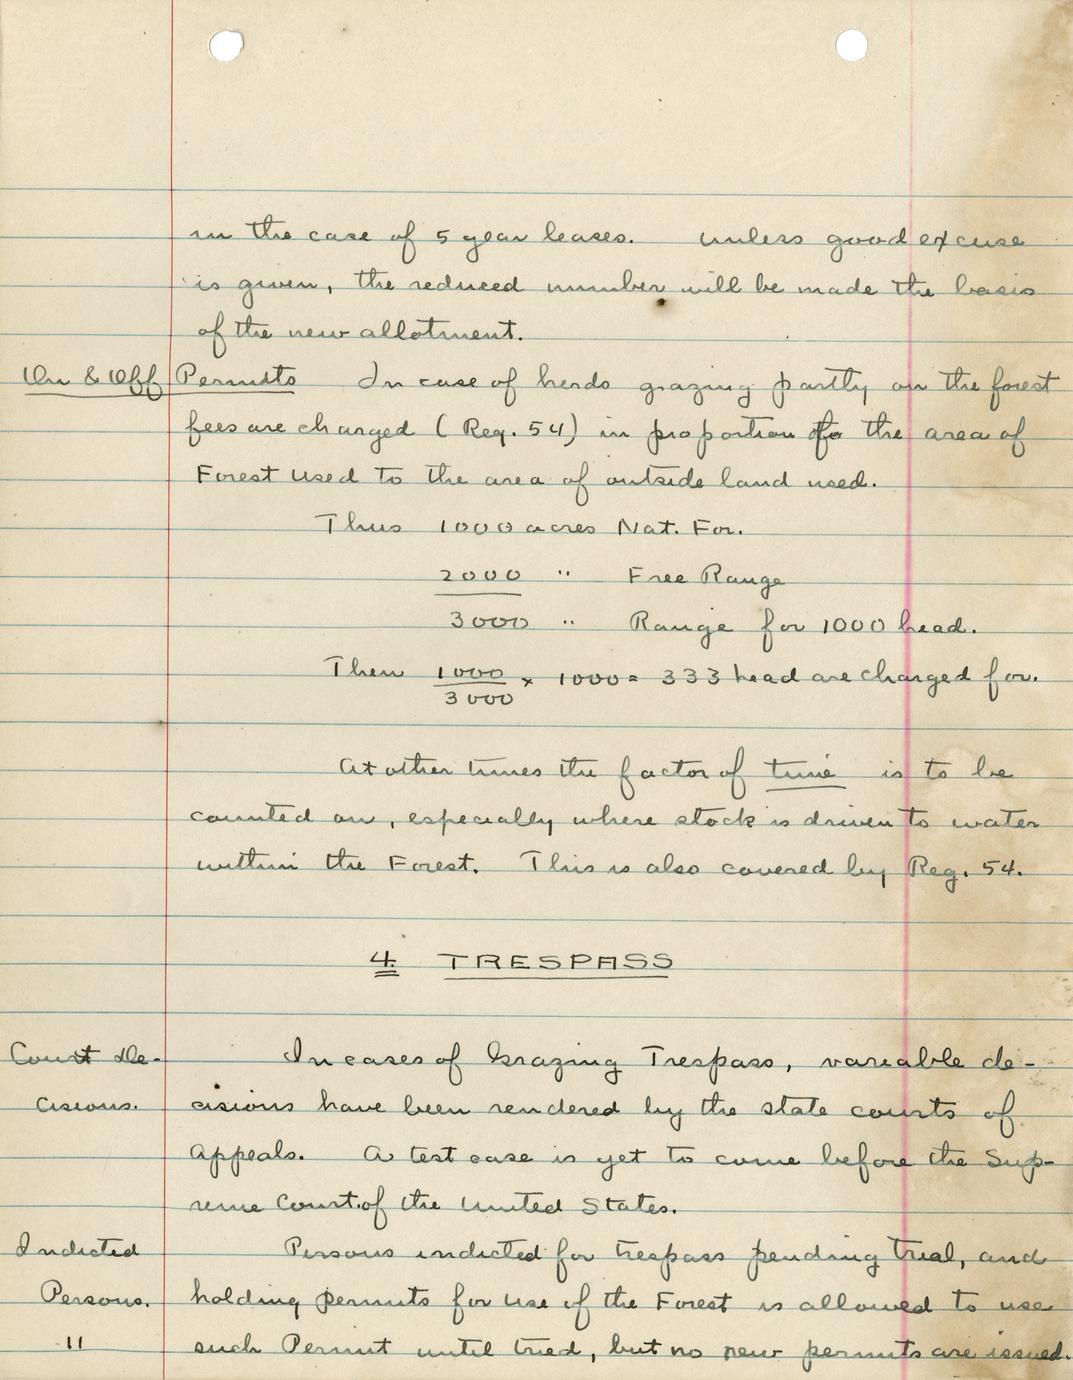 in the case of 5 year leases. Unless good excuse
is given, the reduced number will be made the basis
of the new allotment.
On & Off Permits In case of herds grazing partly on the forest
fees are charged (Reg. 54) in proportion to the area of
Forest used to the area of outside land used.
Thus 1000 acres Nat. For.
2000 " Free Range
3000 " Range for 1000 head.
Then 1000/3000 x 1000 = 333 head are charged for.
At other times the factor of time is to be
counted on, especially where stock is driven to water
within the Forest. This is also covered by Reg. 54.
4. TRESPASS
Court De- In cases of Grazing Trespass, variable de-
cisions. cisions have been rendered by the state courts of
Appeals. A test case is yet to come before the Sup-
reme Court of the United States.
Indicted Persons indicted for trespass pending trial, and
Persons. holding permits for use of the Forest is allowed to use
11 such Permit until tried, but no new permits are issued.